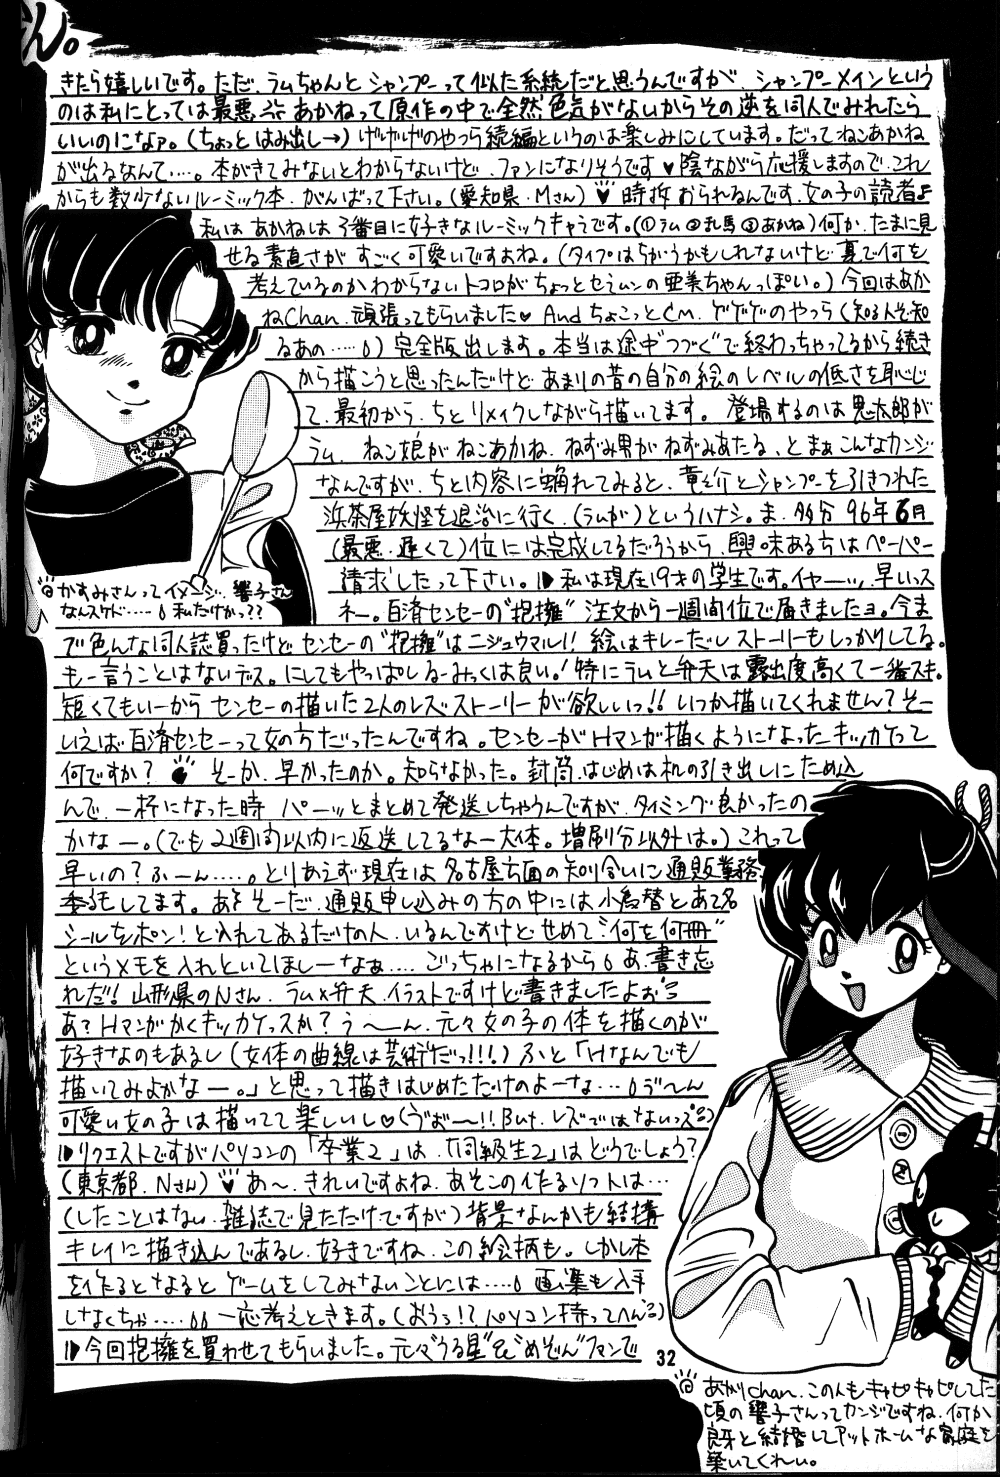 ん。
きたら嬉しいです。ただ、ラムちゃんとシャンプーって似た系統だと思うんですが、シャンプーメインという
のは私にとっては最悪 あかねって原作の中で全然色気がないからその逆を同人でみれたら
いいのになァ。(ちょっとはみ出し→)げげげのやっら続編というのは楽しみにしています。だってねこあかね
が出るなんて…。本がきてみないとわからないけど、ファンになりそうです♥陰ながら応援しますので、これ
からも数少ないルーミック本、がんばって下さい。(愛知県・Mさん) 時折おられるんです、女の子の読者♪
私はあかねは3番目に好きなルーミックキャラです。(①ラム②乱馬③あかね)何か、たまに見
せる素直さがすごく可愛いですよね。(タイプはちがうかもしれないけど、裏で何を
考えているのかわからないトコロがちょっとセラムンの亜美ちゃんっぽい。)今回はあか
ねChan、頑張ってもらいました♡ Andちょこっとcm. ゲゲゲのやっら(知る人ぞ知
るあの……6)完全版出します。本当は途中"つづく"で終わっちゃってるから続き
から描こうと思ったんだけど、あまりの昔の自分の絵のレベルの低さを恥じ
て、最初から、ちとリメイクしながら描いてます。登場するのは鬼太郎が
ラム、ねこ娘がねこあかね、ねずみ男がねずみあたる、とまぁこんなカンジ
なんですが、ちと内容に触れてみると、竜之介とシャンプーを引きつれた
浜茶屋妖怪を退治に行く、(ラムが)というハナシ。ま、多分96年6月
(最悪、遅くて)位には完成してるだろうから、興味ある方はペーパー
請求したって下さい。 私は現在19才の学生です。イヤーッ、早いっス
ネー。百済センセーの"抱擁" 注文から一週間位で届きましたョ。今ま
で色んな同人誌買ったけど、センセーの"抱擁"はニジュウマル!! 絵はキレーだしストーリーもしっかりしてる。
もー言うことはないデス。にしてもやっぱしるーみっくは良い!特にラムと弁天は露出度高くて一番スキ。
短くてもいーからセンセーの描いた2人のレズストーリーが欲しいっ!! いつか描いてくれません?そー
いえば百済センセーって女の方だったんですね。センセーがHマンガ描くようになったキッカケって
何ですか? そーか、早かったのか。知らなかった。封筒、はじめは机の引き出しにため込
んで、一杯になった時パーッとまとめて発送しちゃうんですが、タイミング良かったの
かなー。(でも2週間以内に返送してるなー大体。増刷分以外は。)これって
早いの?ふーん……。とりあえず現在は名古屋方面の知り合いに通販業務
委託してます。あ、そーだ、通販申し込みの方の中には小為替とあて名
シールをポン!と入れてあるだけの人、いるんですけど、せめて"何を何冊"
というメモを入れといてほしーなぁ…. ごっちゃになるから6 あ、書き忘
れだ!山形県のNさん、ラム×弁天、イラストですけど書きましたよぉ
あ?Hマンガかくキッカケっスか?う〜ん、元々女の子の体を描くのが
好きなのもあるし(女体の曲線は芸術だっ!!!)ふと「Hなんでも
描いてみよかなー。」と思って描きはじめただけのよーな…6ゔ〜ん
可愛い女の子は描いてて楽しいし♡(ゔぉ〜!!But.レズではないっス)
リクエストですがパソコンの「卒業2」は、「同級生2」はどうでしょう?
(東京都、Nさん) あ〜、きれいですよね、あそこの作るソフトは…
(したことはない、雑誌で見ただけですが)背景なんかも結構
キレイに描き込んであるし、好きですね、この絵柄も。しかし本
を作るとなるとゲームをしてみないことには….6 画集も入手
しなくちゃ…..66 一応考えときます。(おうっ!?パソコン持ってへんぞ)
今回抱擁を買わせてもらいました。元々"うる星"&"めぞん"ファンで
かすみさんってイメージ、響子さん
なんスケド…..6私だけかっ??
32
あかりchan、この人もキャピキャピしてた
頃の響子さんってカンジですね、何か
良牙と結婚してアットホームな家庭を
築いてくれい。